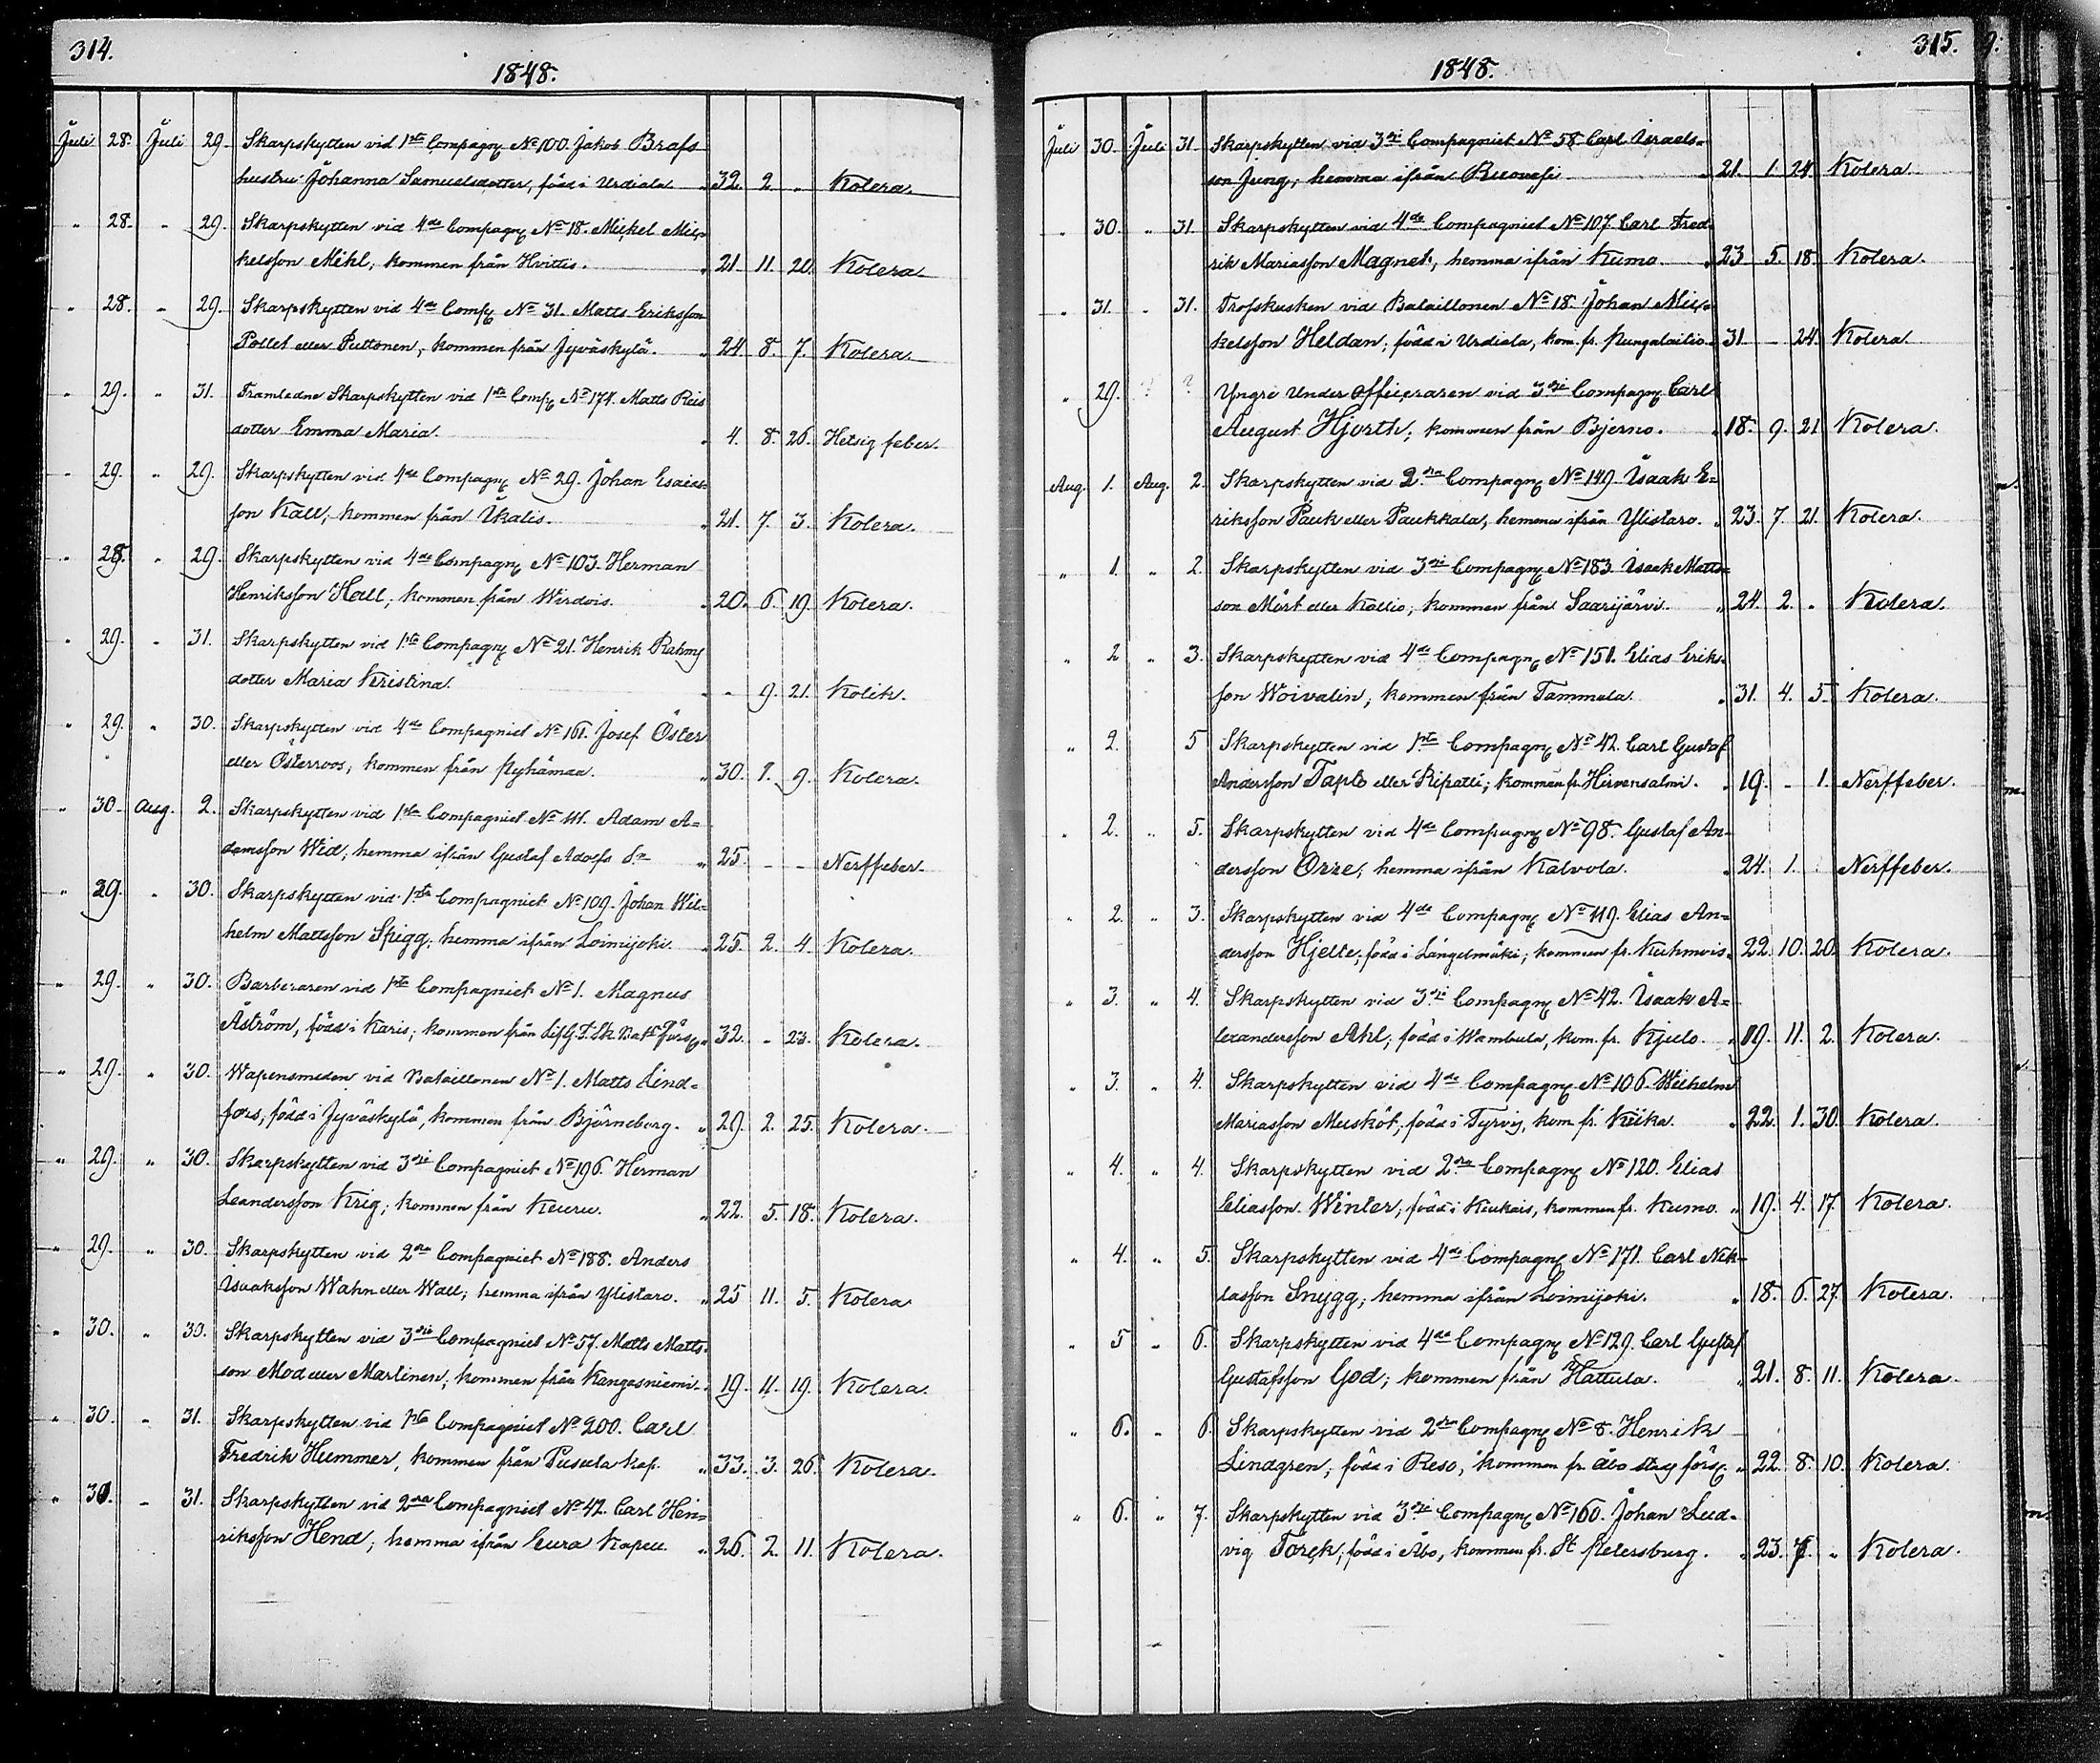 314.
1848.
Juli 28. Juli 29. Skarpskytten vid 1sta Compagn. No 100. Jakob Brafs
hustru Johanna Samuelsdotter, född i Urdiala 32. 2. „ Kolera.
„ 28. „ 29. Skarpskytten vid 4de Compagn. No 18. Mickel Mic-
kelsson Mehl, kommen från Hvittis. 21. 11. 20. Kolera
„ 28. „ 29. Skarpskytten vid 4de Comp. No 31. Matts Eriksson
Pollet eller Puttonen, kommen från Jyväskylä. 24 8. 7. Kolera
„ 29. „ 31. Framledne Skarpskytten vid 1sta Comp. No 174. Matts Reis
dotter Emma Maria. 4. 8. 26. Hetsig feber.
„ 29. „ 29. Skarpskytten vid 4de Compagn. No 29. Johan Esaias-
son Kall, kommen från Ikalis. 21. 7. 3. Kolera.
„ 28. „ 29. Skarpskytten vid 4de Compagn. No 103. Herman
Henriksson Hall, kommen från Wirdois. 20. 6. 19. Kolera.
„ 29. „ 31. Skarpskytten vid 1sta Compagn. No 21. Henrik Rahms
dotter Maria Kristina. „ 9. 21. Kolik.
„ 29. „ 30. Skarpskytten vid 4de Compagniet No 161. Josef Öster
eller Österroos, kommen från Pyhämaa. 30. 1. 9. Kolera.
„ 30 Aug. 2. Skarpskytten vid 1sta Compagniet No 111. Adam A-
damsson Wid, hemma ifrån Gustaf Adolfs Sn 25. - - Nerffeber.
„ 29. „ 30. Skarpskytten vid 1sta Compagniet No 109. Johan Wil-
helm Mattsson Spigg, hemma ifrån Loimijoki. 25. 2. 4. Kolera.
„ 29. „ 30. Barberaren vid 1sta Compagniet No 1. Magnus
Åström, född i Karis; kommen från LifG. F. Sk. Bat. förs. 32. - 23. Kolera.
„ 29. „ 30. Wapensmeden vid Bataillonen No 1. Matts Lind-
fors, född i Jyväskylä, kommen från Björneborg. 29. 2. 25. Kolera.
„ 29. „ 30. Skarpskytten vid 3dje Compagniet No 196. Herman
Leandersson Krig, kommen från Keuru. 22. 5. 18. Kolera.
„ 29. „ 30. Skarpskytten vid 2dra Compagniet No 188. Anders
Isaaksson Wahn eller Wall; hemma ifrån Ylistaro. 25 11. 5. Kolera
„ 30. „ 30. Skarpskytten vid 3dje Compagniet No 57. Matts Matts-
son Mod eller Martinen, kommen från Kangasniemi. 19. 4. 19. Kolera.
„ 30. „ 31. Skarpskytten vid 1sta Compagniet No 200. Carl
Fredrik Hummer, kommen från Pusula kap. 33. 3. 26. Kolera.
„ 30. „ 31. Skarpskytten vid 2dra Compagniet No 42. Carl Hen-
riksson Hend, hemma ifrån Eura Kapell. 26. 2. 11. Kolera.
315.
1848.
Juli 30. Juli 31. Skarpskytten vid 3dje Compagniet No 58 Carl Israels-
son Jung, hemma ifrån Ruovesi 21. 1. 24 Kolera.
„ 30. „ 31. Skarpskytten vid 4de Compagniet No 107. Carl Fred-
rik Mariasson Magnet, hemma ifrån Kumo. 23 5. 18. Kolera.
„ 31. „ 31. Trosskusken vid Bataillonen No 18. Johan Mic-
kelsson Heldan, född i Urdiala, kom. fr. Pungalaitio 31 - 24. Kolera
„ 29. ? ? Yngre Under Officeraren vid 3dje Compagn. Carl
August Hjorth, kommen från Bjerno. 18. 9. 21 Kolera.
Aug. 1. Aug. 2. Skarpskytten vid 2dra Compagn. No 149. Isaak E-
riksson Pauk eller Paukkala, hemma ifrån Ylistaro. 23. 7. 21. Kolera.
„ 1. „ 2. Skarpskytten vid 3dje Compagn. No 183. Isaak Matts-
son Mört eller Kallio, kommen från Saarijärvi. 24. 2. „ Kolera.
„ 2 „ 3. Skarpskytten vid 4de Compagn. No 151. Elias Eriks-
son Woivalin, kommen från Tammela. 31. 4. 5. Kolera.
„ 2. 5 Skarpskytten vid 1sta Compagn. No 42. Carl Gustaf
Andersson Tapto eller Ripatti; kommen fr. Hirvensalmi. 19. - 1. Nerffeber.
„ 2. „ 5. Skarpskytten vid 4de Compagn. No 98. Gustaf An-
dersson Orre, hemma ifrån Kalvola. 24. 1. Nerffeber.
„ 2. „ 3. Skarpskytten vid 4de Compagn. No 119. Elias An-
dersson Hjelte, född i Längelmäki, kommen fr. Kuhmois. 22. 10. 20. Kolera.
„ 3. „ 4. Skarpskytten vid 3dje Compagn. No 42. Isaak A-
lexandersson Ahl, född i Wambula, kom. fr. Kjulo. 19. 11. 2. Kolera.
„ 3. „ 4. Skarpskytten vid 4de Compagn. No 106. Wilhelm
Mariasson Musköt, född i Tyrvis, kom fr. Kiika. 22. 1. 30. Kolera.
„ 4. „ 4. Skarpskytten vid 2dra Compagn. No 120. Elias
Eliasson Winter, född i Kiukais, kommen fr. Kumo. 19. 4. 17. Kolera.
„ 4. „ 5. Skarpskytten vid 4de Compagn. No 171. Carl Nik-
lasson Snygg, hemma ifrån Loimijoki. 18. 6. 27. Kolera.
„ 5 „ 6. Skarpskytten vid 4de Compagn. No 129. Carl Gustaf
Gustafsson God, kommen från Hattula. 21. 8. 11. Kolera.
„ 6. „ 6. Skarpskytten vid 2dra Compagn. No 8. Henrik
Lindgren, född i Reso, kommen fr. Åbo stads förs. 22. 8. 10. Kolera.
„ 6. „ 7. Skarpskytten vid 3dje Compagn. No 160. Johan Lud-
vig Torck, född i Åbo, kommen fr. St Petersburg. 23. 7. „ Kolera.